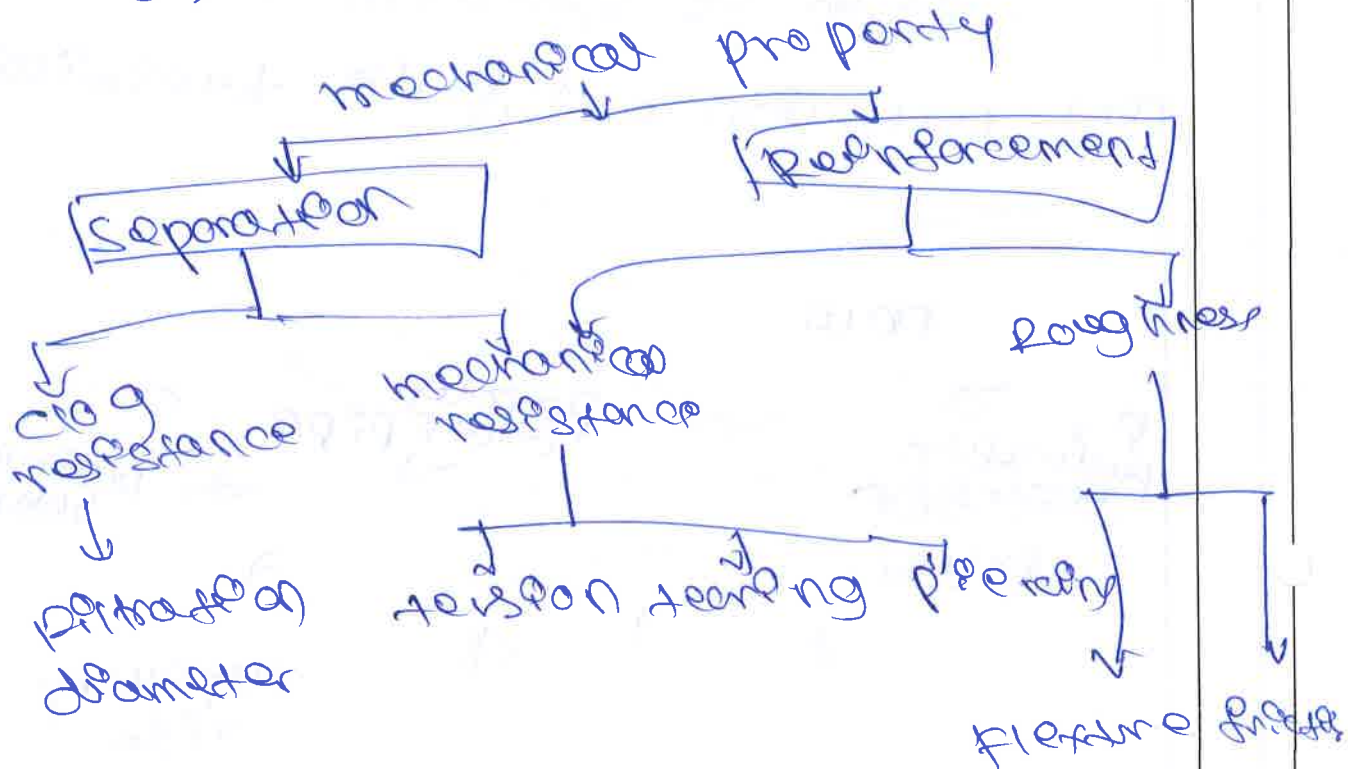 mechanical property
Separation
Reinforcement
clog
resistance
mechanical
resistance
Roughness
filtration
diameter
tension tearing piercing
Flexure